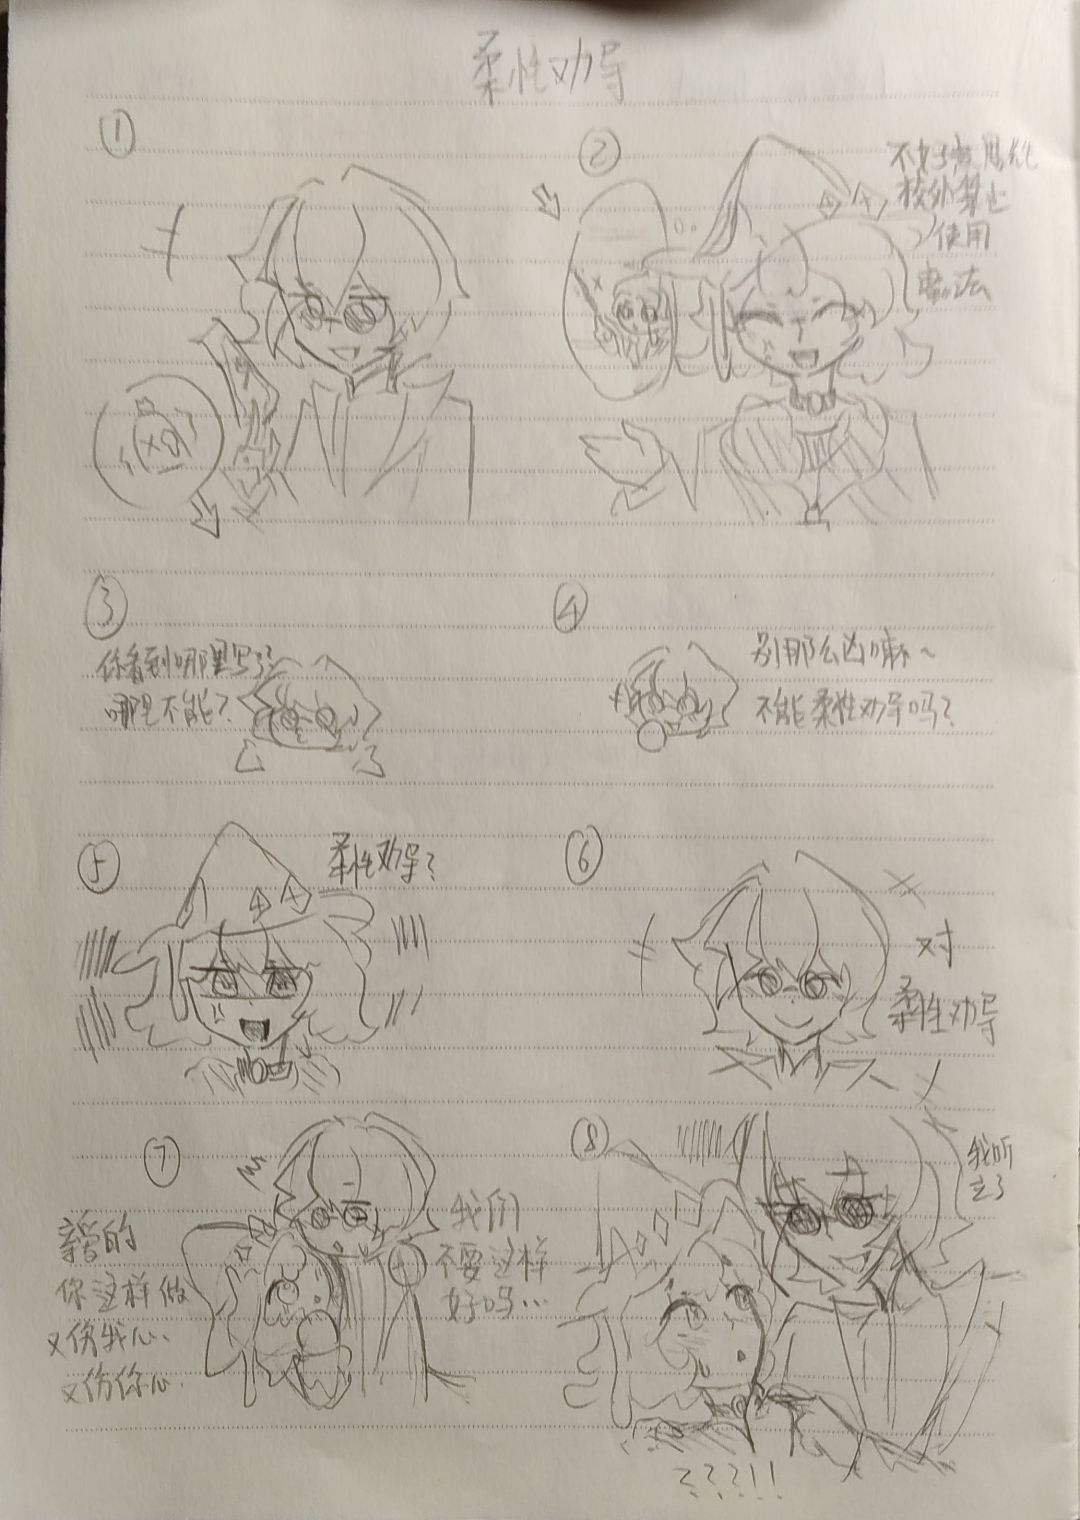 柔性劝导
①
②
不好意思
校外禁止
使用
魔法
③
你看到哪里写了
哪里不能?
④
别那么凶嘛~
不能柔性劝导吗?
⑤
柔性劝导?
⑥
对
柔性劝导
⑦
亲爱的
你这样做
又伤我心..
又伤你心.
我们
不要这样
好吗...
⑧
我听
???!!